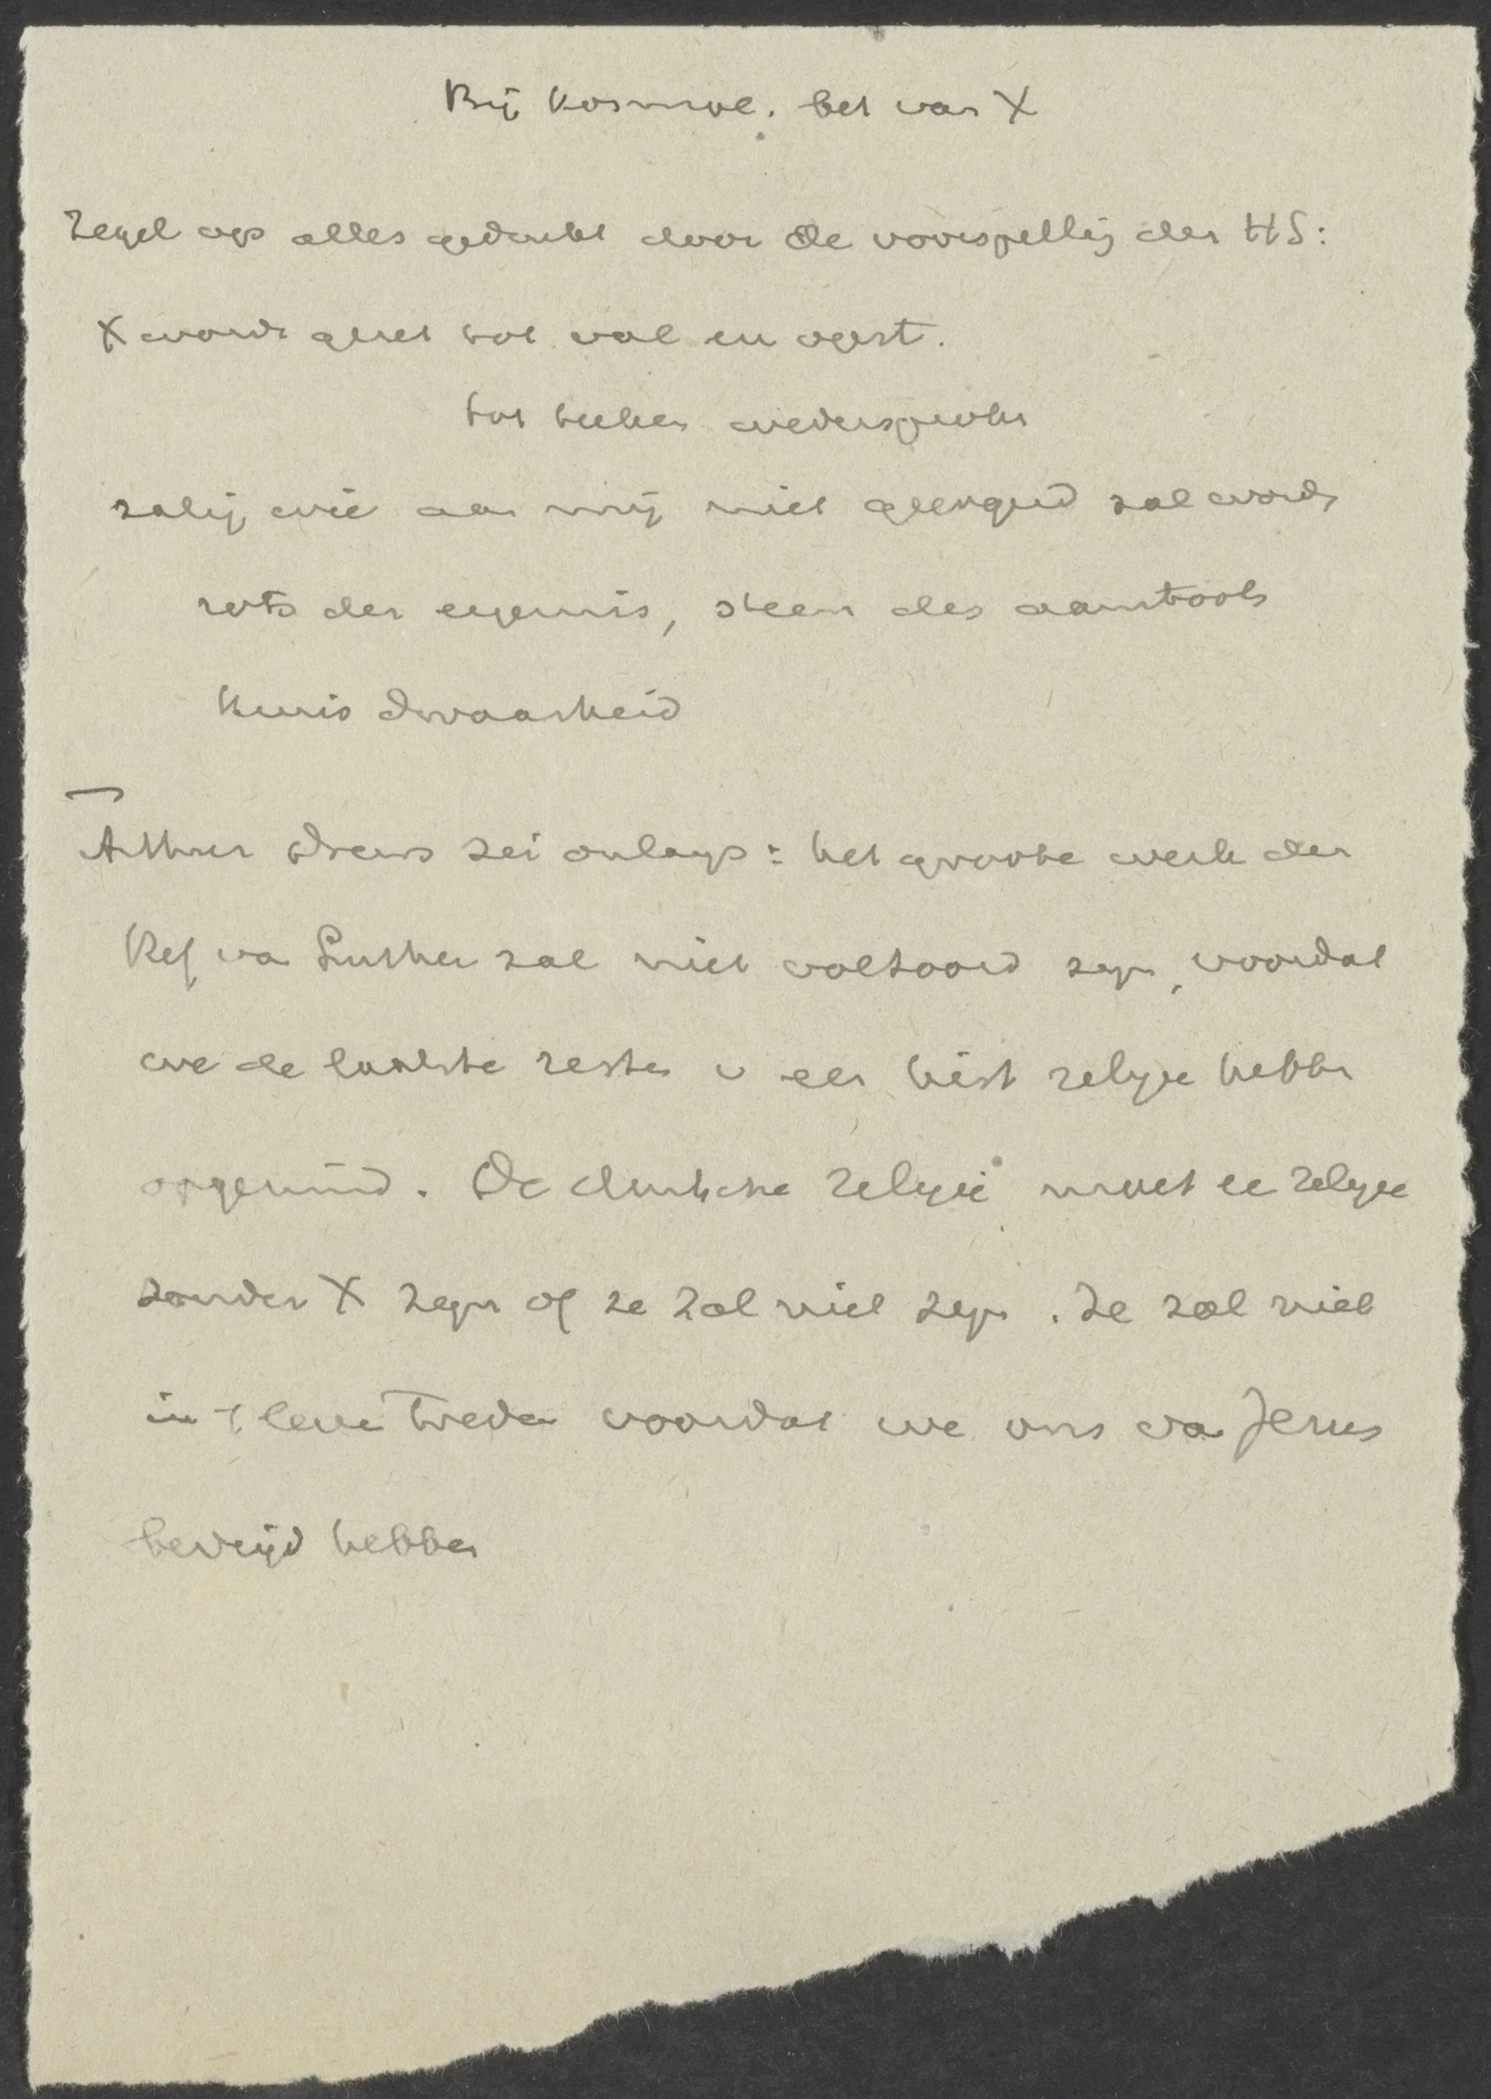 Bij kosmol. bet van X
Zegel op alles gedrukt door de voorspellig der HS:
X wordt gezet tot val en opst.
tot teeken wedersproken
zalig wie aan mij niet geergerd zal word
rots der ergernis, steen des aanstoots
kruis dwaasheid
Arthur Drews zei onlangs: het groote werk der
Ref va Luther zal niet voltooid zijn, voordat
we de laatste resten v een hist religie hebben
opgeruimd. De duitsche religie moet ee religie
zonder X zijn of ze zal niet zijn. Ze zal niet
in 't leve treden voordat we ons va Jezus
bevrijd hebben